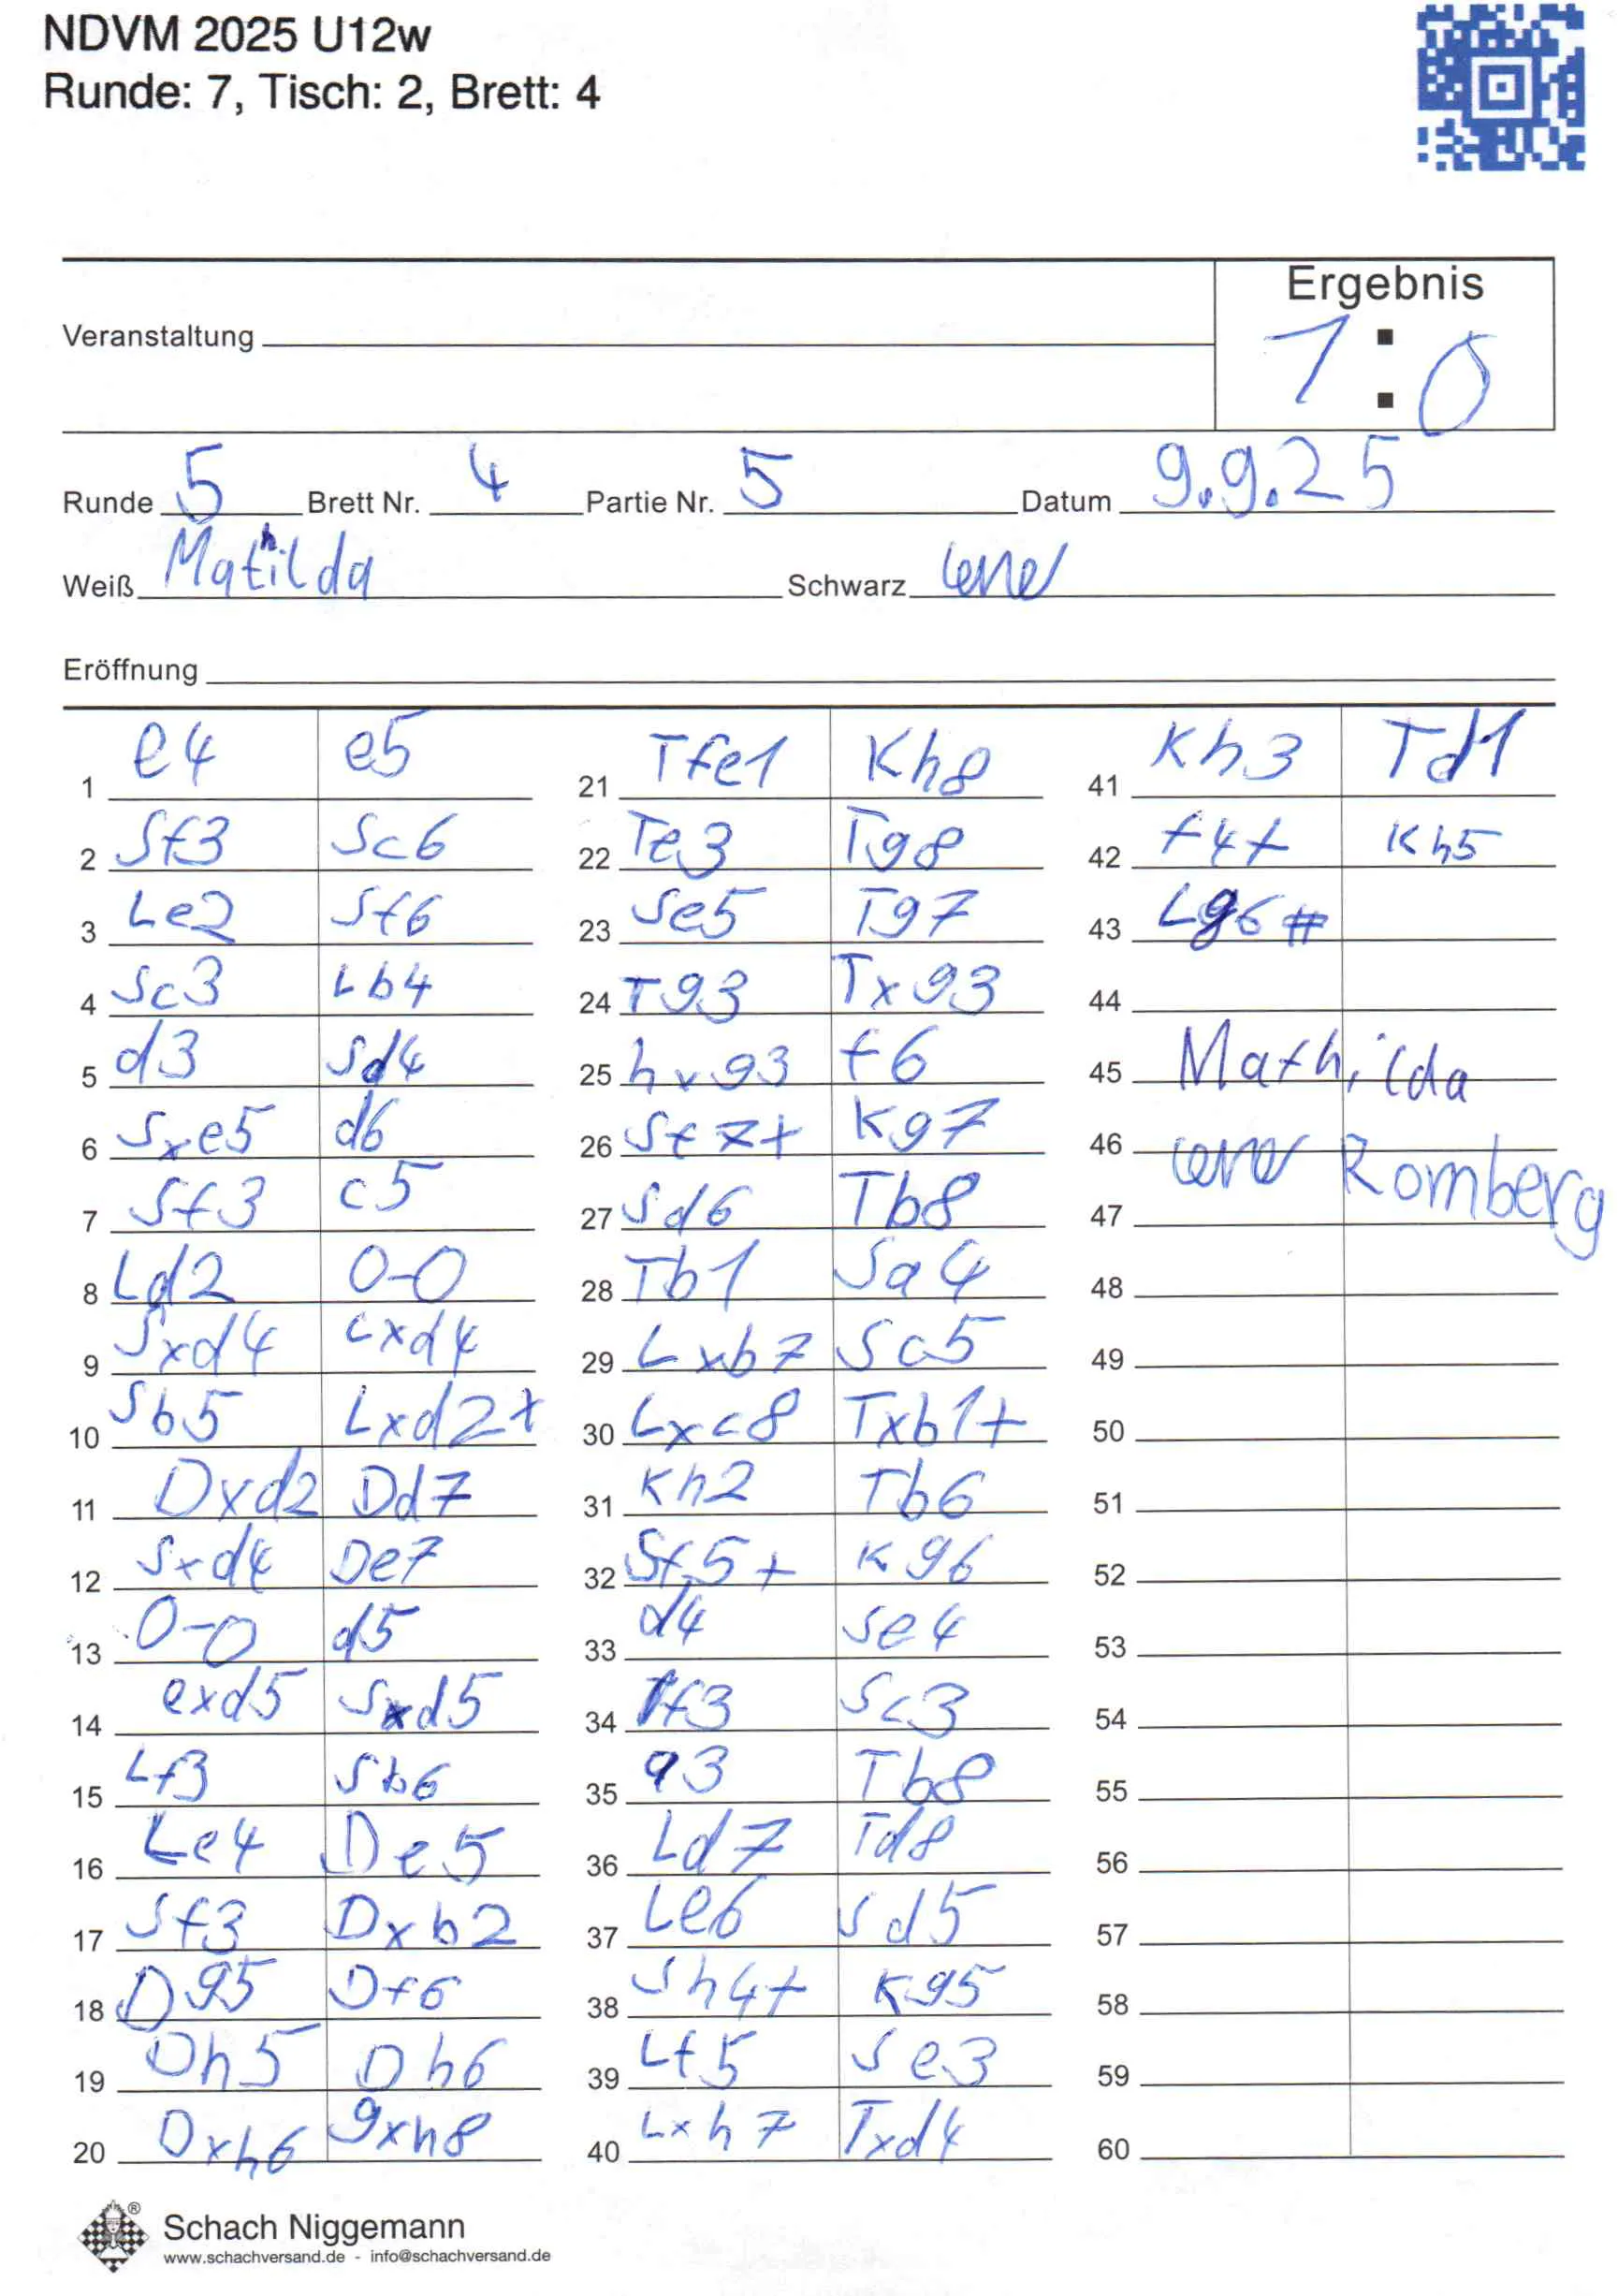 NDVM 2025 U12w
Runde: 7, Tisch: 2, Brett: 4
Ergebnis
1:0
Veranstaltung
Runde 5 Brett Nr. 4 Partie Nr. 5 Datum 9.9.25
Weiß Mathilda Schwarz
Eröffnung
1 e4 e5
2 Sf3 Sc6
3 Le2 Sf6
4 Sc3 Lb4
5 d3 Sd4
6 Sxe5 d6
7 Sf3 c5
8 Ld2 0-0
9 Sxd4 cxd4
10 Sb5 Lxd2+
11 Dxd2 Dd7
12 Sxd4 De7
13 0-0 d5
14 exd5 Sxd5
15 Lf3 Sb6
16 Le4 De5
17 Sf3 Dxb2
18 Dg5 Df6
19 Dh5 Dh6
20 Dxh6 gxh8
21 Tfe1 Kh8
22 Te3 Tg8
23 Se5 Tg7
24 Tg3 Txg3
25 hxg3 f6
26 Sf7+ Kg7
27 Sd6 Tb8
28 Tb1 Sa4
29 Lxb7 Sc5
30 Lxc8 Txb1+
31 Kh2 Tb6
32 Sf5+ Kg6
33 d4 Se4
34 f3 Sc3
35 a3 Tb8
36 Ld7 Td8
37 Le6 Sd5
38 Sh4+ Kg5
39 Lf5 Se3
40 Lxh7 Txd4
41 Kh3 Td1
42 f4+ Kh5
43 Lg6#
44
45 Mathilda
46 Romberg
47
48
49
50
51
52
53
54
55
56
57
58
59
60
Schach Niggemann
www.schachversand.de - info@schachversand.de